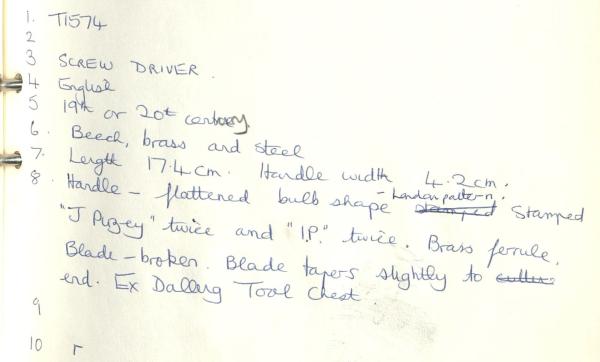 1. T1574
2
3 SCREW DRIVER.
4 English
5 19th or 20th century.
6. Beech, brass and steel
7. Length 17.4cm. Handle width 4.2cm.
8. Handle - flattened bulb shape - London pattern. stamped Stamped
"J Puzey" twice and "I.P." twice. Brass ferrule.
Blade - broken. Blade tapers slightly to
end. Ex Dalling Tool Chest.
9
10 r